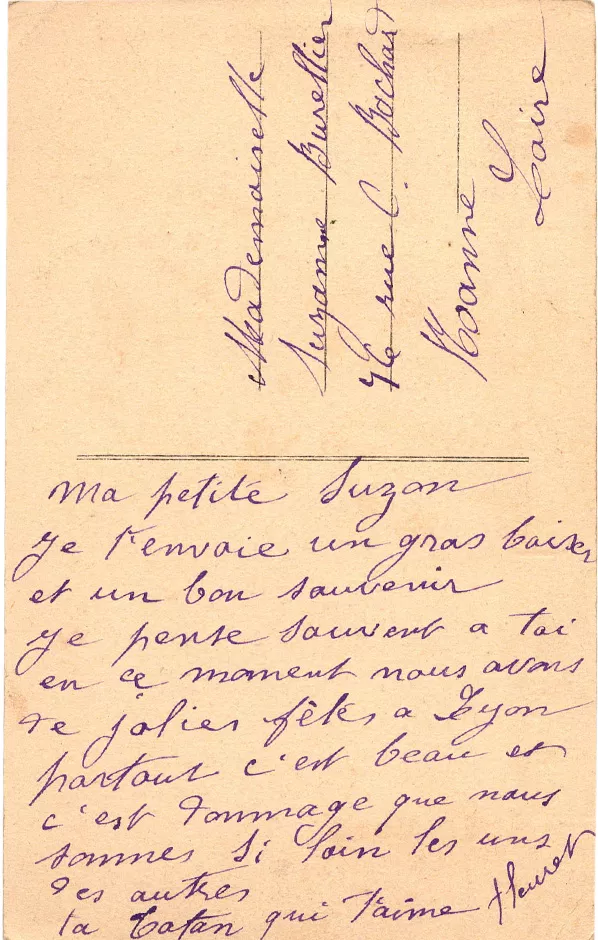 Mademoiselle
Suzanne Burellier
76 rue C. Bochard
Roanne
Loire
Ma petite Suzon
Je t'envoie un gros baiser
et un bon souvenir
Je pense souvent a toi
en ce moment nous avons
de jolies fêtes a Lyon
partout c'est beau et
c'est dommage que nous
sommes si loin les uns
des autres
ta Tatan qui t'aime Fleuret